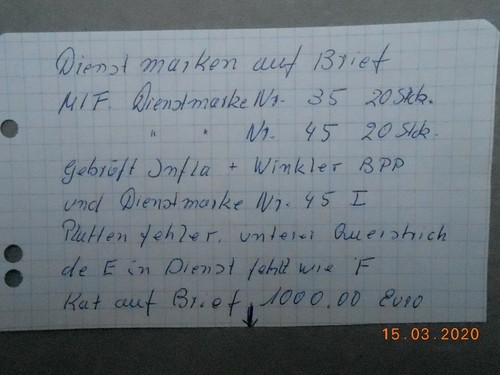 Dienst marken auf Brief
MIF. Dienstmarke Nr. 35 20 Stck.
" " Nr. 45 20 Stck.
Gebrüft Infla + Winkler BPP
und Dienstmarke Nr. 45 I
Platten fehler. unterer Querstrich
de E in Dienst fehlt wie F
Kat auf Brief 1000.00 Euro
15.03.2020